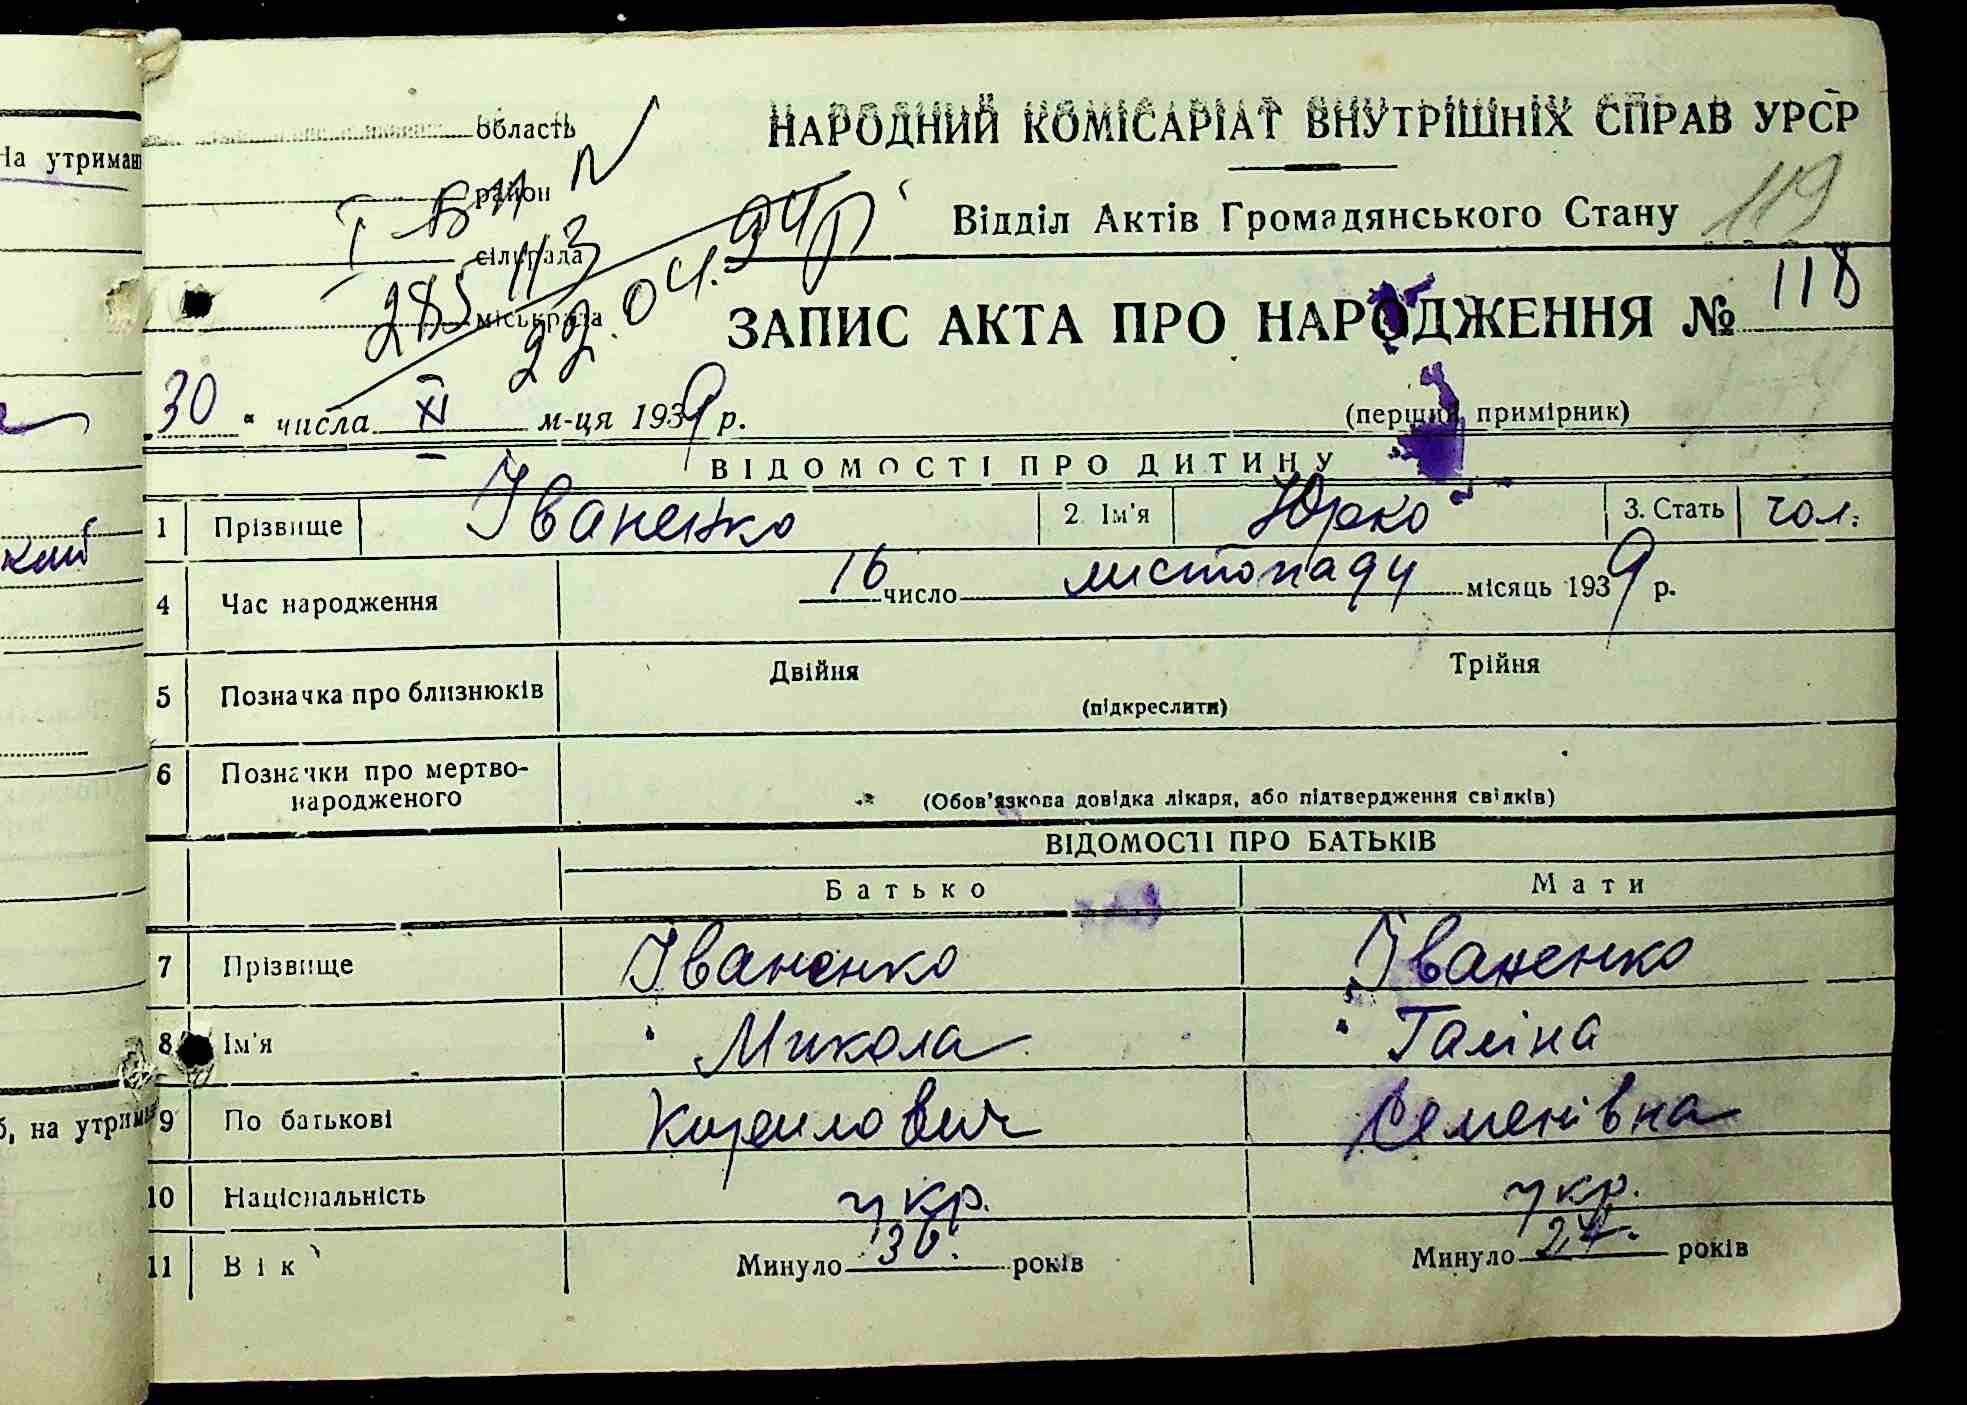 На утриман
кий
б, на утрим
область
НАРОДНИЙ КОМІСАРІАТ ВНУТРІШНІХ СПРАВ УРСР
район
Відділ Актів Громадянського Стану
119
сільрада
міськрада
22.04.94р
ЗАПИС АКТА ПРО НАРОДЖЕННЯ № 118
30 " числа XI м-ця 1939 р.
(перший примірник)
ВІДОМОСТІ ПРО ДИТИНУ
1 Прізвище Іваненко 2. Ім'я Юрко 3. Стать чол.
4 Час народження 16 число листопаду місяць 1939 р.
5 Позначка про близнюків Двійня Трійня
(підкреслити)
6 Позначки про мертво-
народженого
(Обов'язкова довідка лікаря, або підтвердження свідків)
ВІДОМОСТІ ПРО БАТЬКІВ
Батько Мати
7 Прізвище Іваненко Іваненко
8 Ім'я Микола Галіна
9 По батькові Кирилович Семенівна
10 Національність укр. укр.
11 Вік Минуло 36. років Минуло 27. років